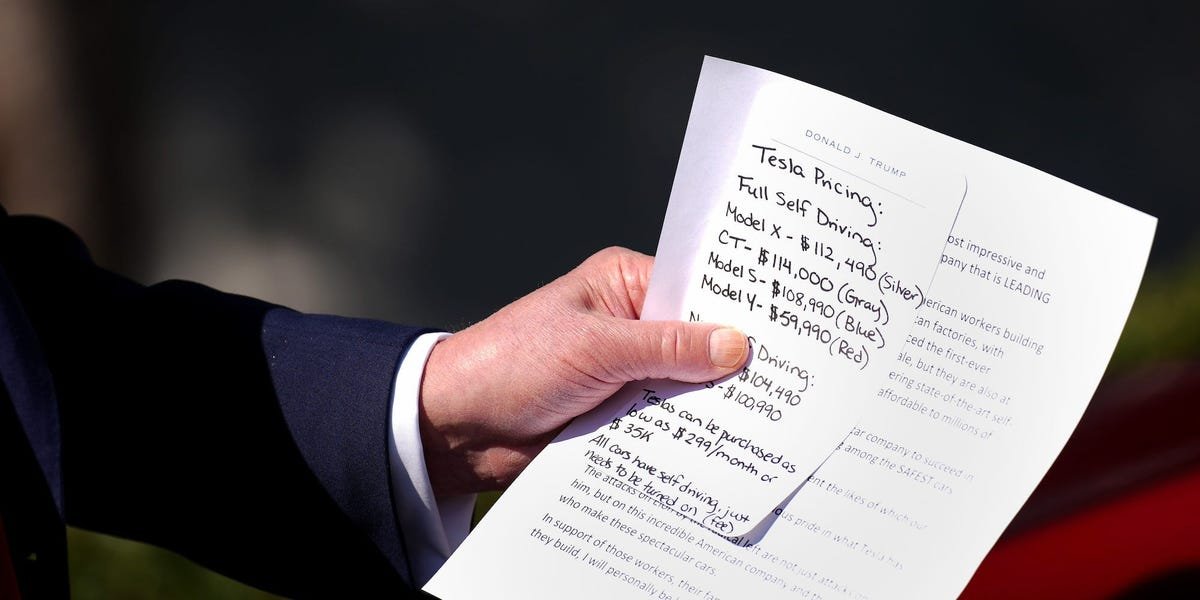 DONALD J. TRUMP
Tesla Pricing:
Full Self Driving:
Model X - $112,490 (Silver)
CT- $114,000 (Gray)
Model S- $108,990 (Blue)
Model Y- $59,990 (Red)
Driving:
$104,490
$100,990
Teslas can be purchased as
low as $299/month or
$35K
All cars have self driving, just
needs to be turned on (fee)
impressive and
that is LEADING
workers building
factories, with
the first-ever
but they are also at
state-of-the-art self
affordable to millions of
company to succeed in
among the SAFEST cars
the likes of which our
pride in what Tesla has
The attacks on left are not just attacks on
him, but on this incredible American company and the
who make these spectacular cars.
In support of those workers, their
they build, I will personally be